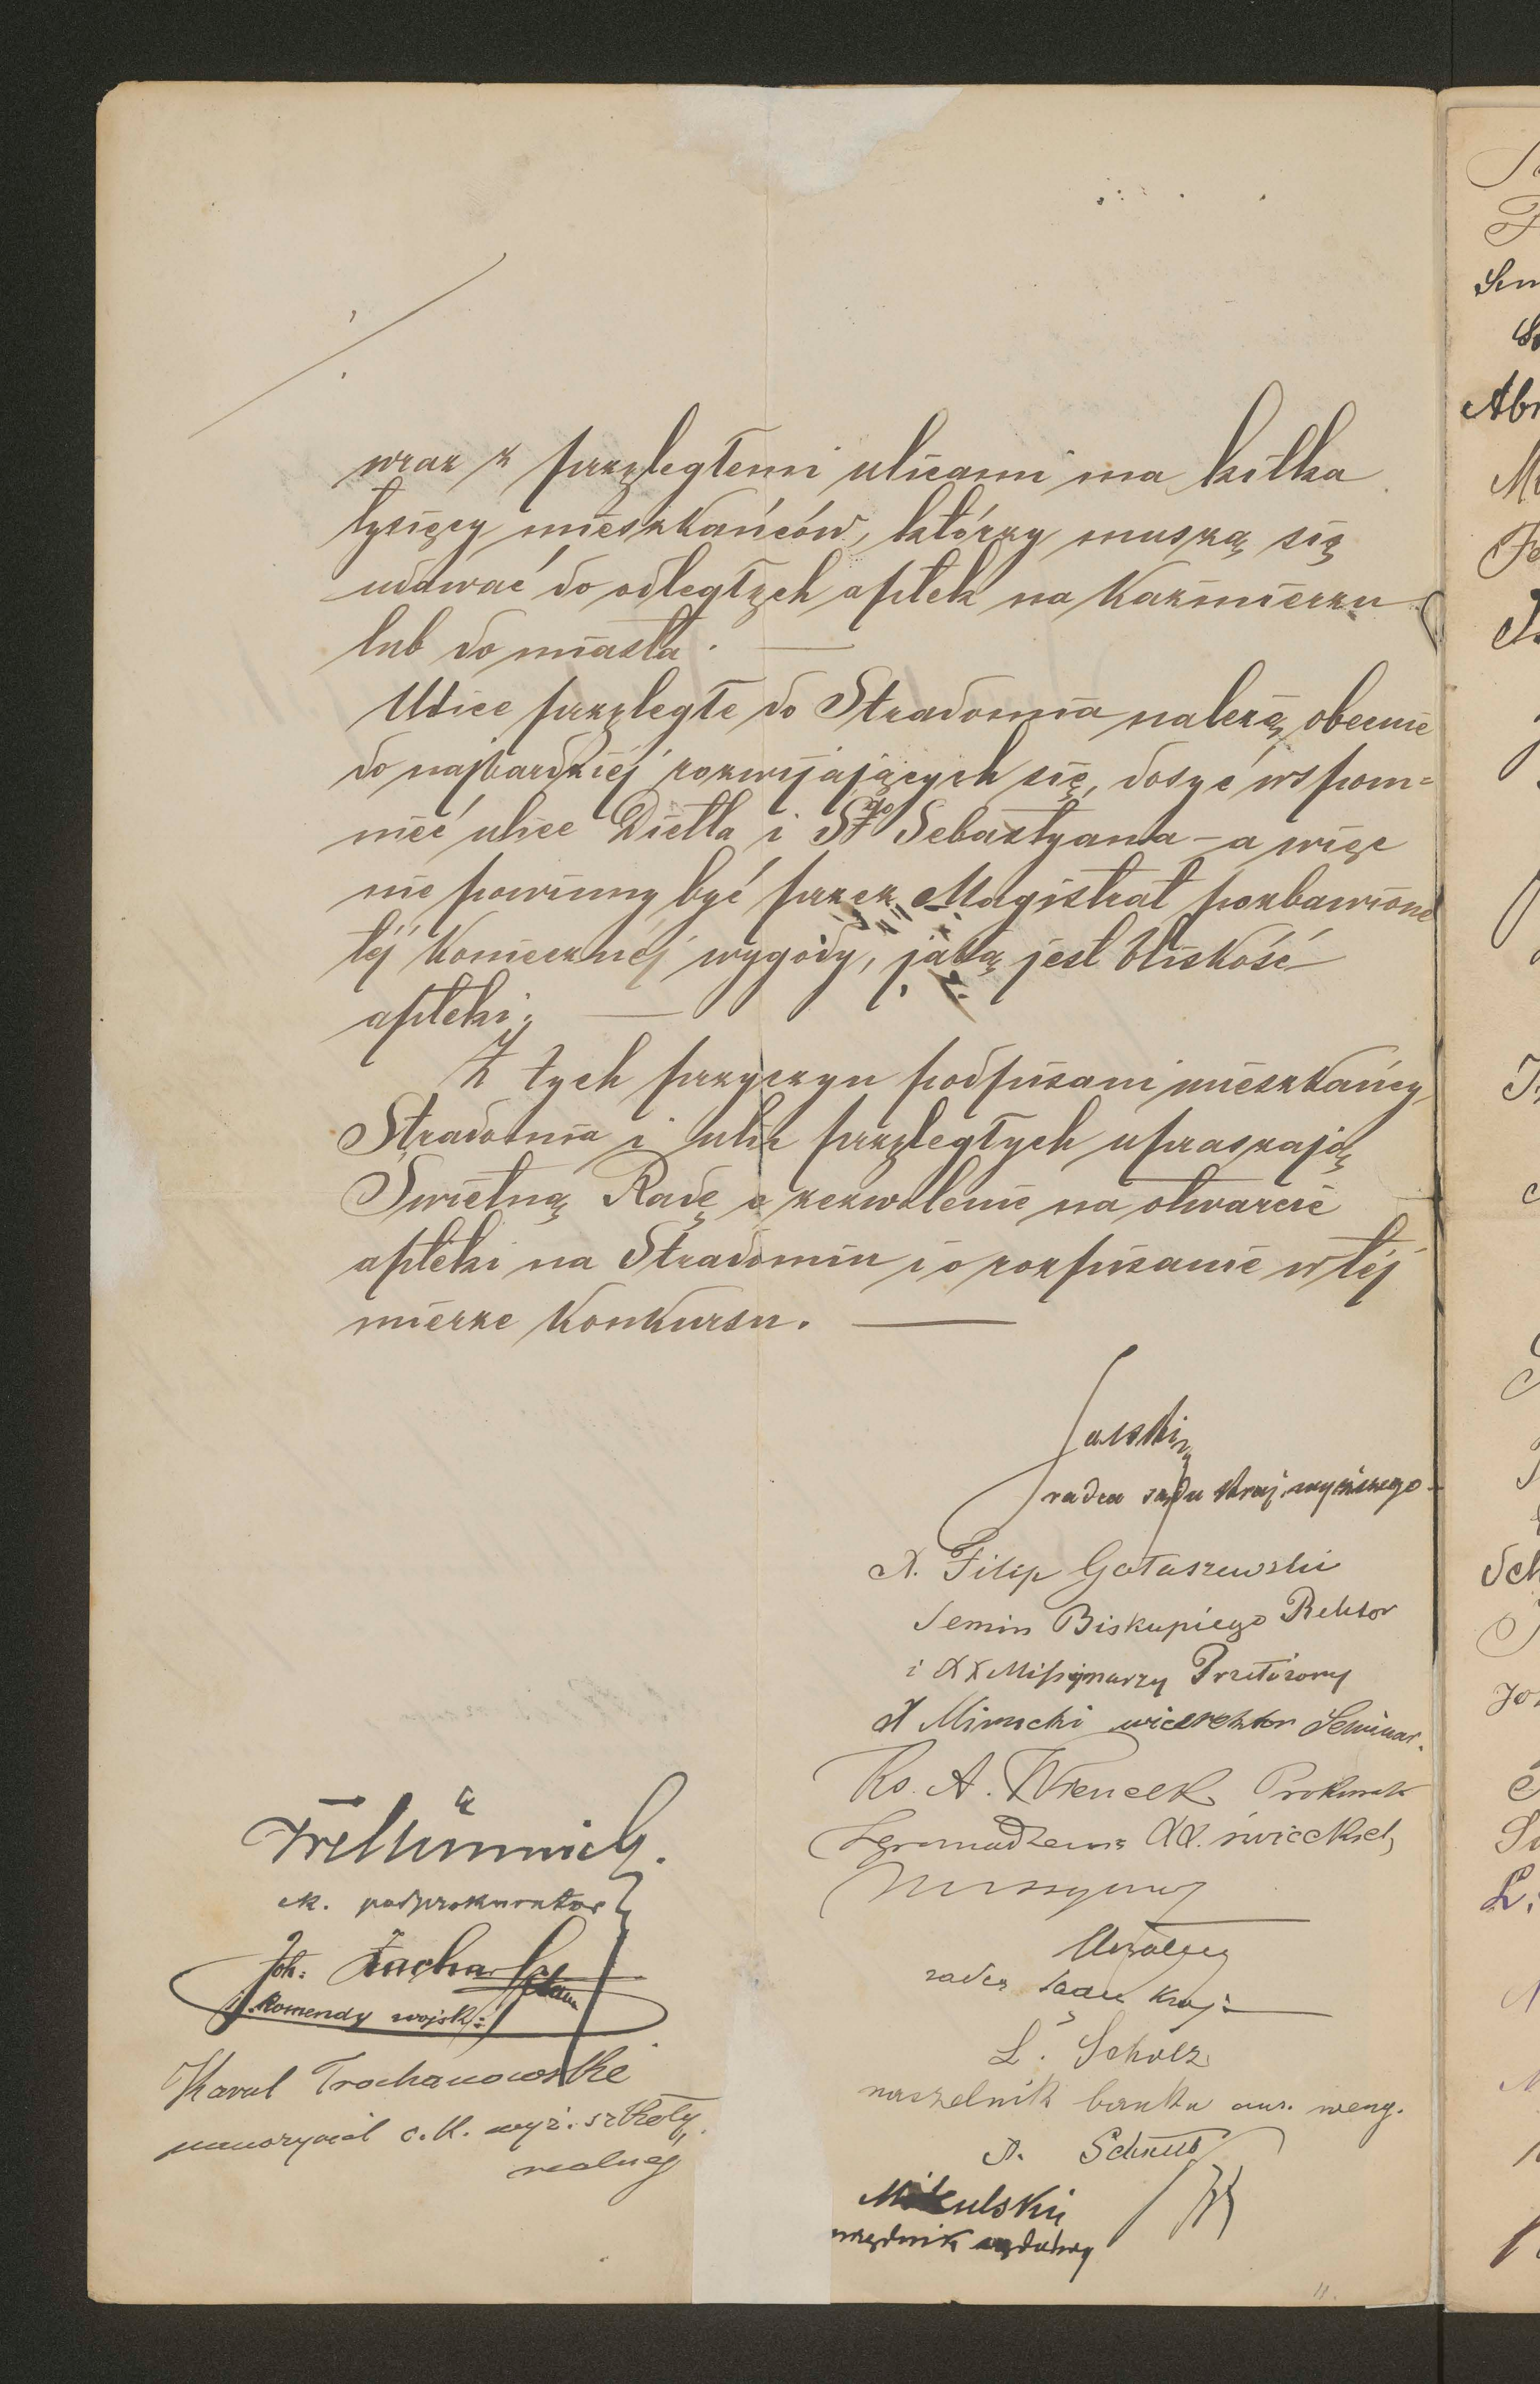 wraz z przyległemi ulicami ma kilka
tysięcy mieszkańców, którzy muszą się
udawać do odległych aptek na Kazimierzu
lub do miasta. —
Ulice przyległe do Stradomia należą obecnie
do najbardziej rozwijających się, dosyć wspom=
nieć ulice Dietla i Śgo Sebastyana – a więc
nie powinny być przez Magistrat pozbawione
tej koniecznej wygody, jaką jest bliskość
apteki. —
Z tych przyczyn podpisani mieszkańcy
Stradomia i ulic przyległych upraszają
Świetną Radę o zezwolenie na otwarcie
apteki na Stradomiu i o rozpisanie w tej
mierze Konkursu. —
radca sądu kraj. wyższego
X. Filip Gołaszewski
Semin Biskupiego Rektor
i XX Missyonarzy Przełożony
X Mirucki wicerektor Seminar.
Ks. A. Wrencek Prokurator
Zgromadzenia XX. świeckich
radca sądu kraj.
L. Scholz
naczelnik banku aus. weng.
A.
Mikulski
urzędnik sądowy
ck. podprokurator
Joh: Zacha
komendy wojsk:
Karol Trochanowski
nauczyciel c.k. wyż. szkoły
realnej
Sch
L.
11.